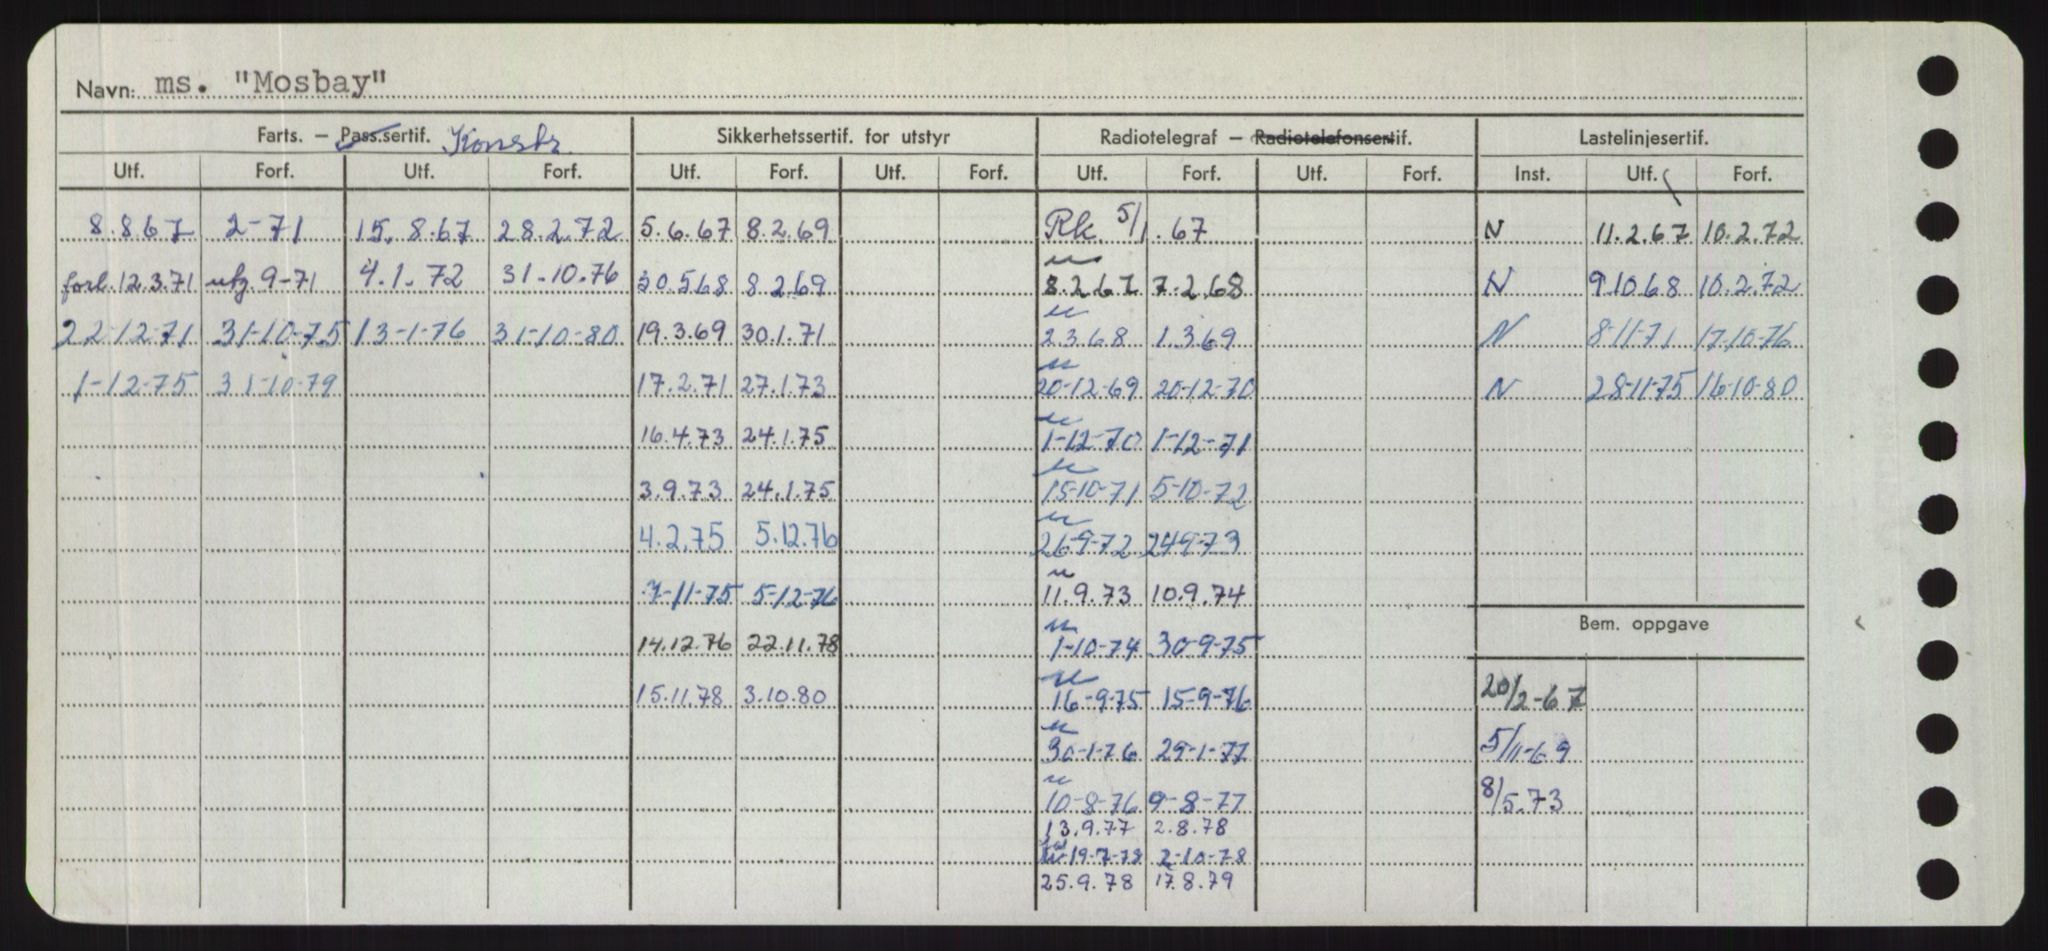 Navn: ms. "Mosbay"
Farts. — Pass.sertif. Konstr. Sikkerhetssertif. for utstyr Radiotelegraf — Radiotelefonsertif. Lastelinjesertif.
Utf. Forf. Utf. Forf. Utf. Forf. Utf. Forf. Utf. Forf. Utf. Forf. Inst. Utf. Forf.
8.8.67 2-71 15.8.67 28.2.72 5.6.67 8.2.69 Rk. 5/1.67 N 11.2.67 10.2.72
forl. 12.3.71 utg. 9-71 4.1.72 31.10.76 30.5.68 8.2.69 8.2.67 7.2.68 N 9.10.68 10.2.72
22-12-71 31-10-75 13-1-76 31-10-80 19.3.69 30.1.71 2.3.68 1.3.69 N 8-11-71 17-10-76
1-12-75 31-10-79 17.2.71 27.1.73 20-12-69 20-12-70 N 28-11-75 16-10-80
16.4.73 24.1.75 1-12-70 1-12-71
3.9.73 24.1.75 15-10-71 5-10-72
4.2.75 5.12.76 26-9-72 24-9-73
7-11-75 5-12-76 11.9.73 10.9.74
Bem. oppgave
14.12.76 22.11.78 1-10-74 30-9-75
15.11.78 3.10.80 16-9-75 15-9-76 20/2-67
30-1-76 29-1-77 5/11-69
10-8-76 9-8-77 8/5.73
13.9.77 2.8.78
19-7-78 2-10-78
25.9.78 17.8.79